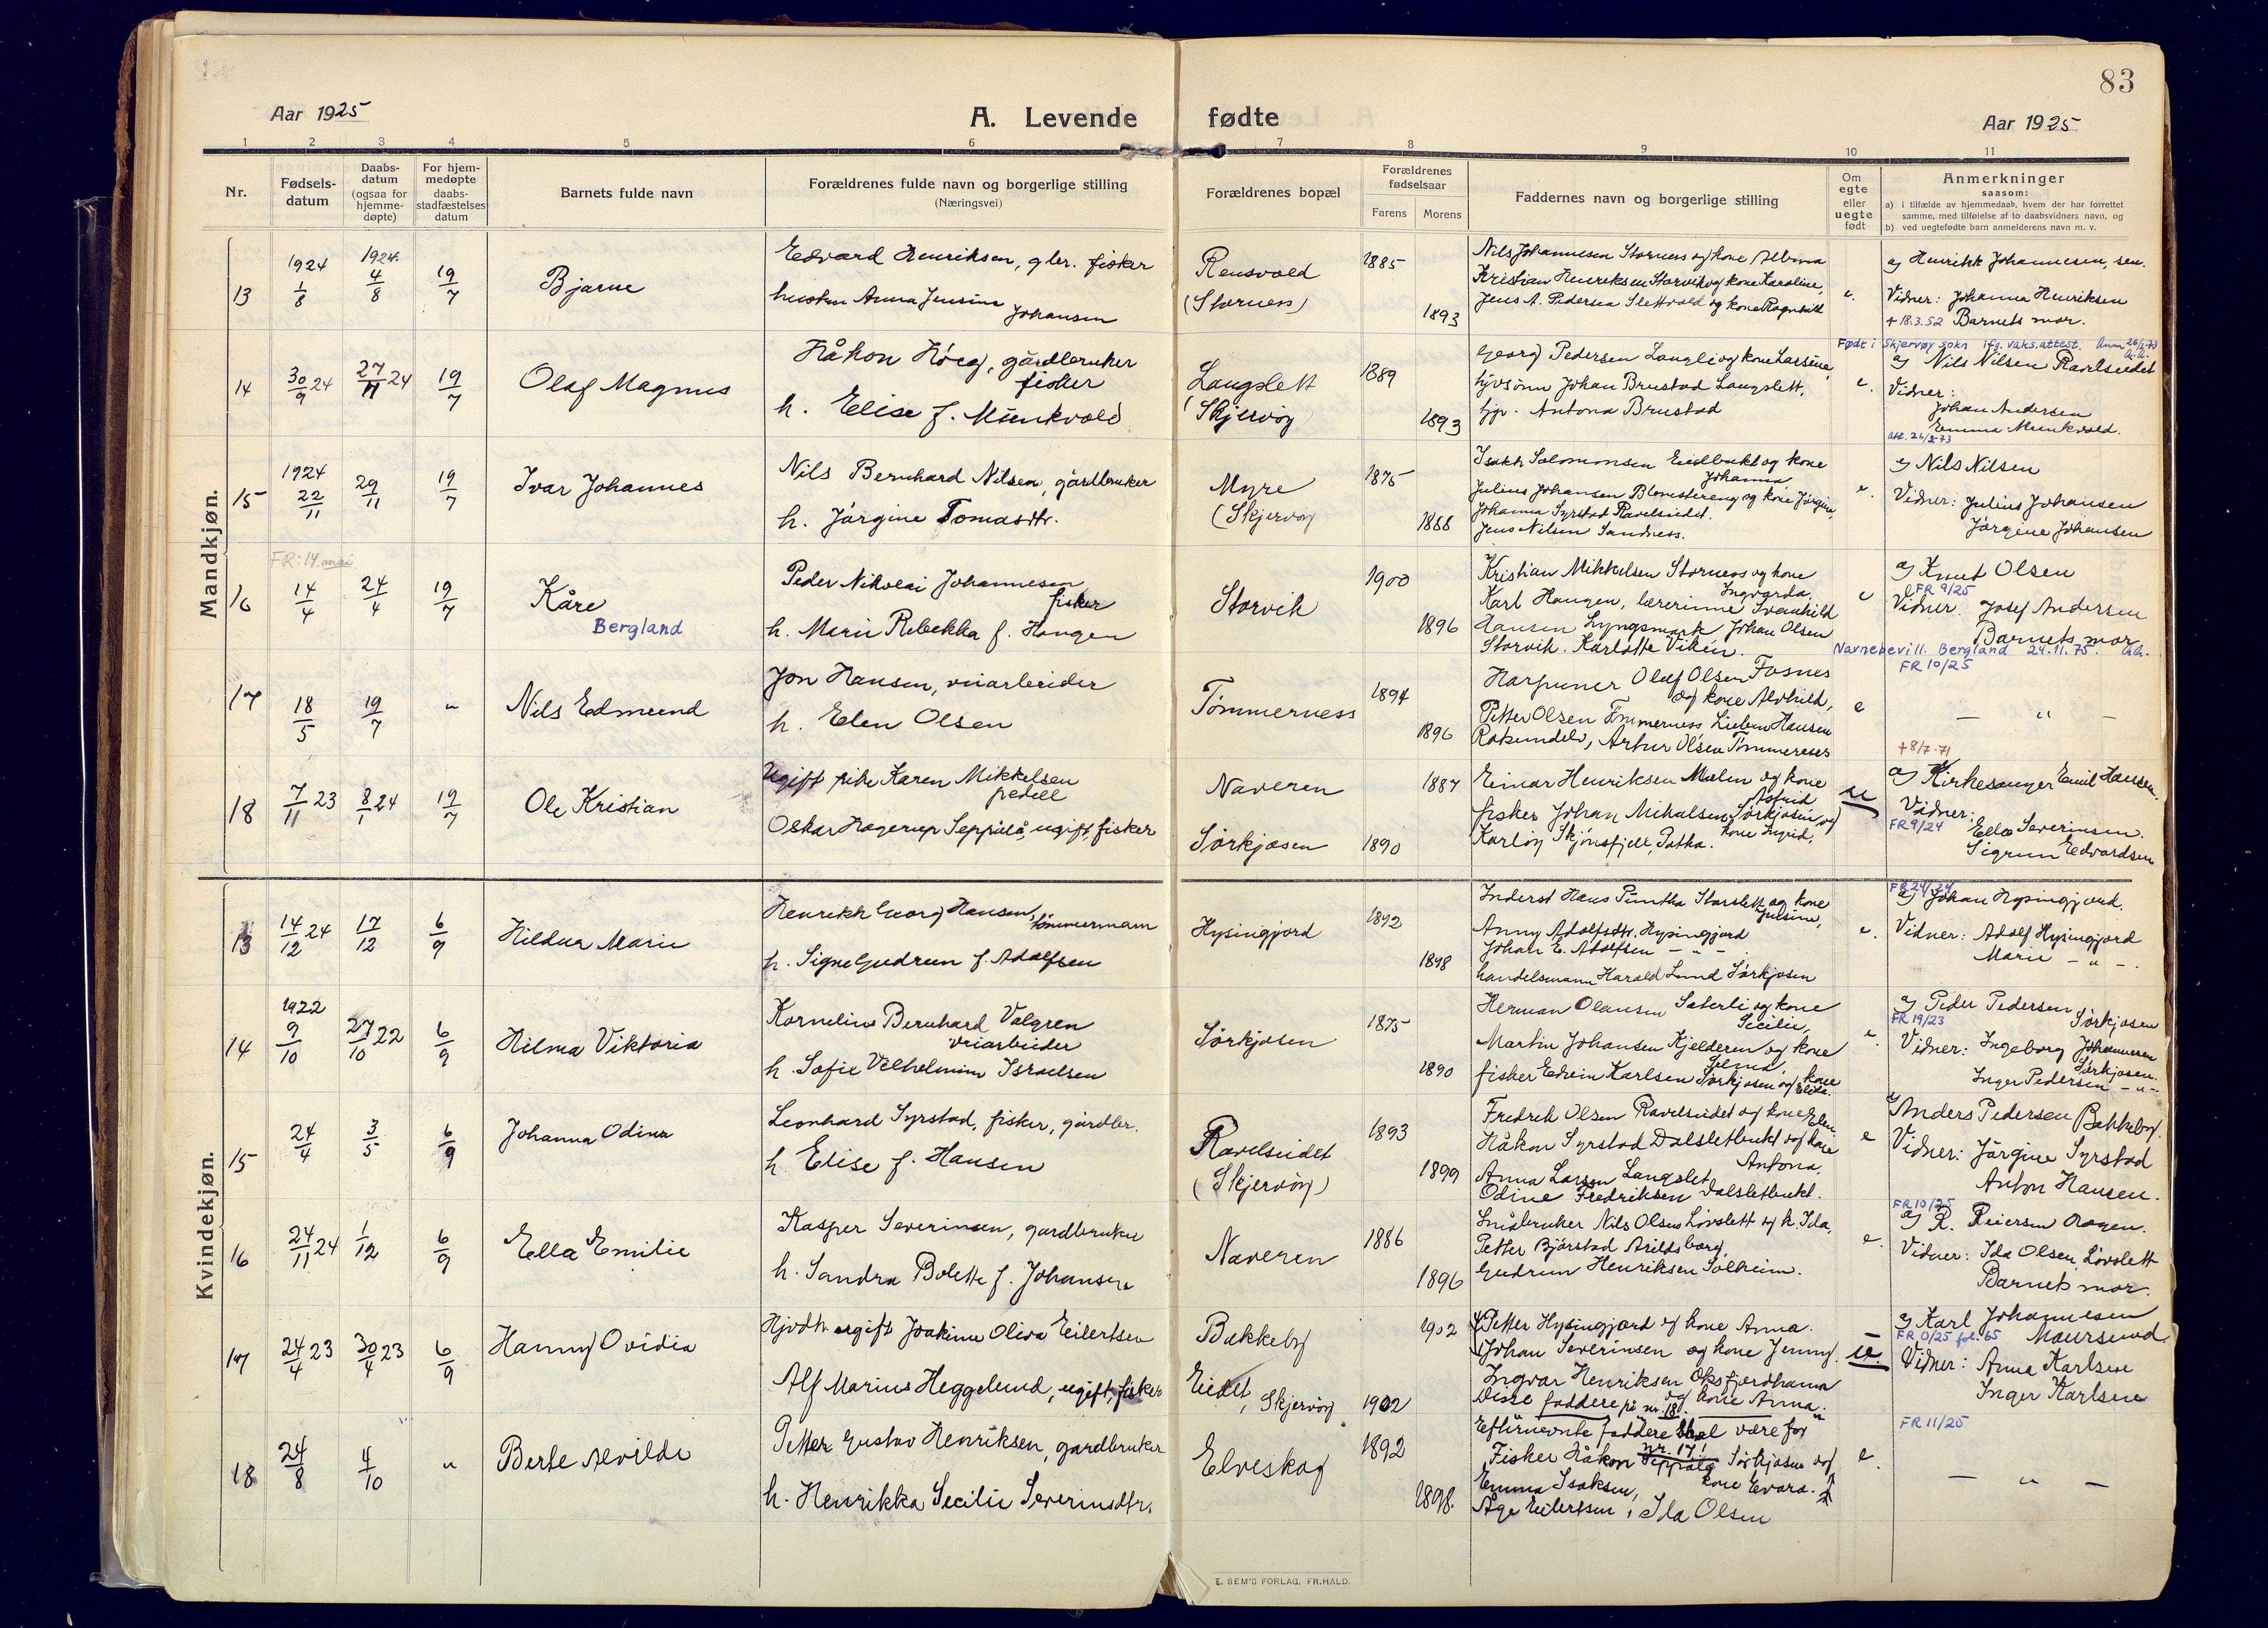 83
Aar 1925
A. Levende fødte
Aar 1925
1 2 3 4 5 6 7 8 9 10 11
Nr.
Fødsels-
datum
Daabs-
datum
(ogsaa for
hjemme-
døpte)
For hjem-
medøpte
daabs-
stadfæstelses
datum
Barnets fulde navn
Forældrenes fulde navn og borgerlige stilling
(Næringsvei)
Forældrenes bopæl
Forældrenes
fødselsaar
Farens Morens
Faddernes navn og borgerlige stilling
Om
egte
eller
uegte
født
Anmerkninger
saasom:
a) i tilfælde av hjemmedaab, hvem der har forrettet
samme, med tilføielse af to daabsvidners navn, og
b) ved uegtefødte barn anmelderens navn m. v.
Mandkjøn.
13
1924
1/8
1924
4/8
19/7
Bjarne
Edvard Henriksen, gbr. fisker
hustru Anna Jensine
Johansen
Rensvold
(Storness)
1885
1893
Nils Johannesen Storness og kone Albina
Kristian Henriksen Storvik og kone Karoline,
Jens A. Pedersen Slettvold og kone Ragnhild
e.
a) Henrikk Johannesen, sen.
Vidner: Johanna Henriksen
+ 18.3.52 Barnets mor.
14
30/9 24
27/11 24
19/7
Olaf Magnus
Håkon Höeg, gårdbruker
fisker
h. Elise f. Munkvold
Langslett
(Skjervøy
1889
1893
Georg Pedersen Langli og kone Larsine,
Johan Brustad Langslett,
Antona Brustad
e.
Født i Skjervøy sokn ifg. vaks.attest.
a) Nils Nilsen Ravelseidet
Vidner:
Johan Andersen
Emma Munkvold.
15
1924
22/11
29/11
19/7
Ivar Johannes
Nils Bernhard Nilsen, gårdbruker
h. Jørgine Tomasdtr.
Myre
(Skjervøy
1875
1888
Isak Salomonsen Eidbukt og kone
Johanna,
Julius Johansen Blomstereng og kone Jørgine,
Johanna Syrstad Ravelseidet.
Jens Nilsen Sandness.
e.
a) Nils Nilsen
Vidner: Julius Johansen
Jørgine Johansen
16
FR: 14 mai
14/4
24/4
19/7
Kåre
Bergland
Peder Nikolai Johannesen
fisker
h. Marie Rebekka f. Haugen
Storvik
1900
1896
Kristian Mikkelsen Storness og kone
Ingvarda.
Karl Haugen, lærerinne Svanhild
Hansen Lyngsmark Johan Olsen
Storvik. Karlotte Viken.
e
a) Knut Olsen
FR 9/25
Vidner: Josef Andersen
Barnets mor.
Navnebevill. Bergland 24.11.75.
FR 10/25
17
18/5
19/7
"
Nils Edmund
Jon Hansen, veiarbeider
h. Elen Olsen
Tømmerness
1894
1896
Harpuner Olaf Olsen Fosnes
og kone Alvhild,
Petter Olsen Tømmerness
Rakundelv, Artur Olsen Tømmerness
e
— " —
18
7/11 23
8/1 24
19/7
Ole Kristian
Ugift pike Karen Mikkelsen
Oskar Hagerup Seppälä, ugift, fisker
Naveren
Sørkjosen
1887
1890
Einar Henriksen Malen og kone
Astrid
fisker Johan Mihalsen Sørkjosen og
kone Ingrid,
Karløy Skjönsfjell,
u
+8/7-71
a) Kirkesanger Emil Hansen.
Vidner:
FR 9/24
Ella Severinsen.
Sigrun Edvardsen
Kvindekjøn.
13
14/12 24
17/12
6/9
Hildur Marie
Henrikk Georg Hansen,
tømmermann
h. Signe Gudrun f. Adolfsen
Hysingjord
1892
1898
Inderst Hans Puntha Storslett og kone
Julsine,
Anny Adolfsdtr. Hysingjord
Johan E. Adolfsen - " -
handelsmann Harald Lund Sørkjosen
e.
FR 24/24
a) Johan Hysingjord.
Vidner: Adolf Hysingjord
Marie - " -
14
1922
9/10
27/10 22
6/9
Hilma Viktoria
Kornelius Bernhard Valgren
veiarbeider
h. Sofie Vilhelmine Israelsen
Sørkjosen
1875
1890
Herman Olausen Sæterli og kone
Sicilie,
Martin Johansen Kjelderen og kone
Selma,
fisker Edvin Karlsen Sørkjosen og kone
Elida.
e.
a) Peder Pedersen
Sørkjosen
FR 19/23
Vidner: Ingeborg Johannesen
Sørkjosen.
Inger Pedersen - " -
15
24/4
3/5
6/9
Johanna Odina
Leonhard Syrstad, fisker, gårdbr.
h. Elise f. Hansen
Ravelseidet
(Skjervøy)
1893
1899
Fredrik Olsen Ravelseidet og kone Elen
Håkon Syrstad Dalsletbukt og kone
Antona,
Anna Larsen Langslet
Odine Fredriksen Dalsletbukt.
e
a) Anders Pedersen Bakkeby.
Vidner: Jørgine Syrstad
Anton Hansen.
16
24/11 24
1/12
6/9
Ella Emilie
Kasper Severinsen, gardbruker
h. Sandra Bolette f. Johansen
Naveren
1886
1896
Småbruker Nils Olsen Løvslett og k. Ida,
Petter Bjørstad Arildsborg,
Gudrun Henriksen Solheim.
e.
FR 10/25
a) R. Reiersen Hagen.
Vidner: Ida Olsen Løvslett
Barnets mor.
17
24/4 23
30/4 23
6/9
Hanny Ovidia
ugift Joakime Oliva Eilertsen
Alf Marius Heggelund, ugift, fisker
Bakkeby
Eidet, Skjervøy
1902
1902
Petter Hysingjord og kone Anna.
Johan Severinsen og kone Jenny.
Ingvar Henriksen Oksfjordhamn
og kone Anna.
Disse faddere på nr. 18.
u.
a) Karl Johannesen
Maursund.
FR 0/25 fol. 65
Vidner: Anna Karlsen
Inger Karlsen
18
24/8
4/10
"
Berte Alvilde
Petter Gustav Henriksen, gardbruker
h. Henrikka Secilie Severinsdtr.
Elveskog
1892
1898.
Efternevnte faddere skal være for
nr. 17!
Fisker Håkon Seppälä Sørkjosen og
kone Evara.
Emma Isaksen,
Åge Eilertsen, Ida Olsen
e.
FR 11/25
— " —
E. SEM'S FORLAG, FR.HALD.